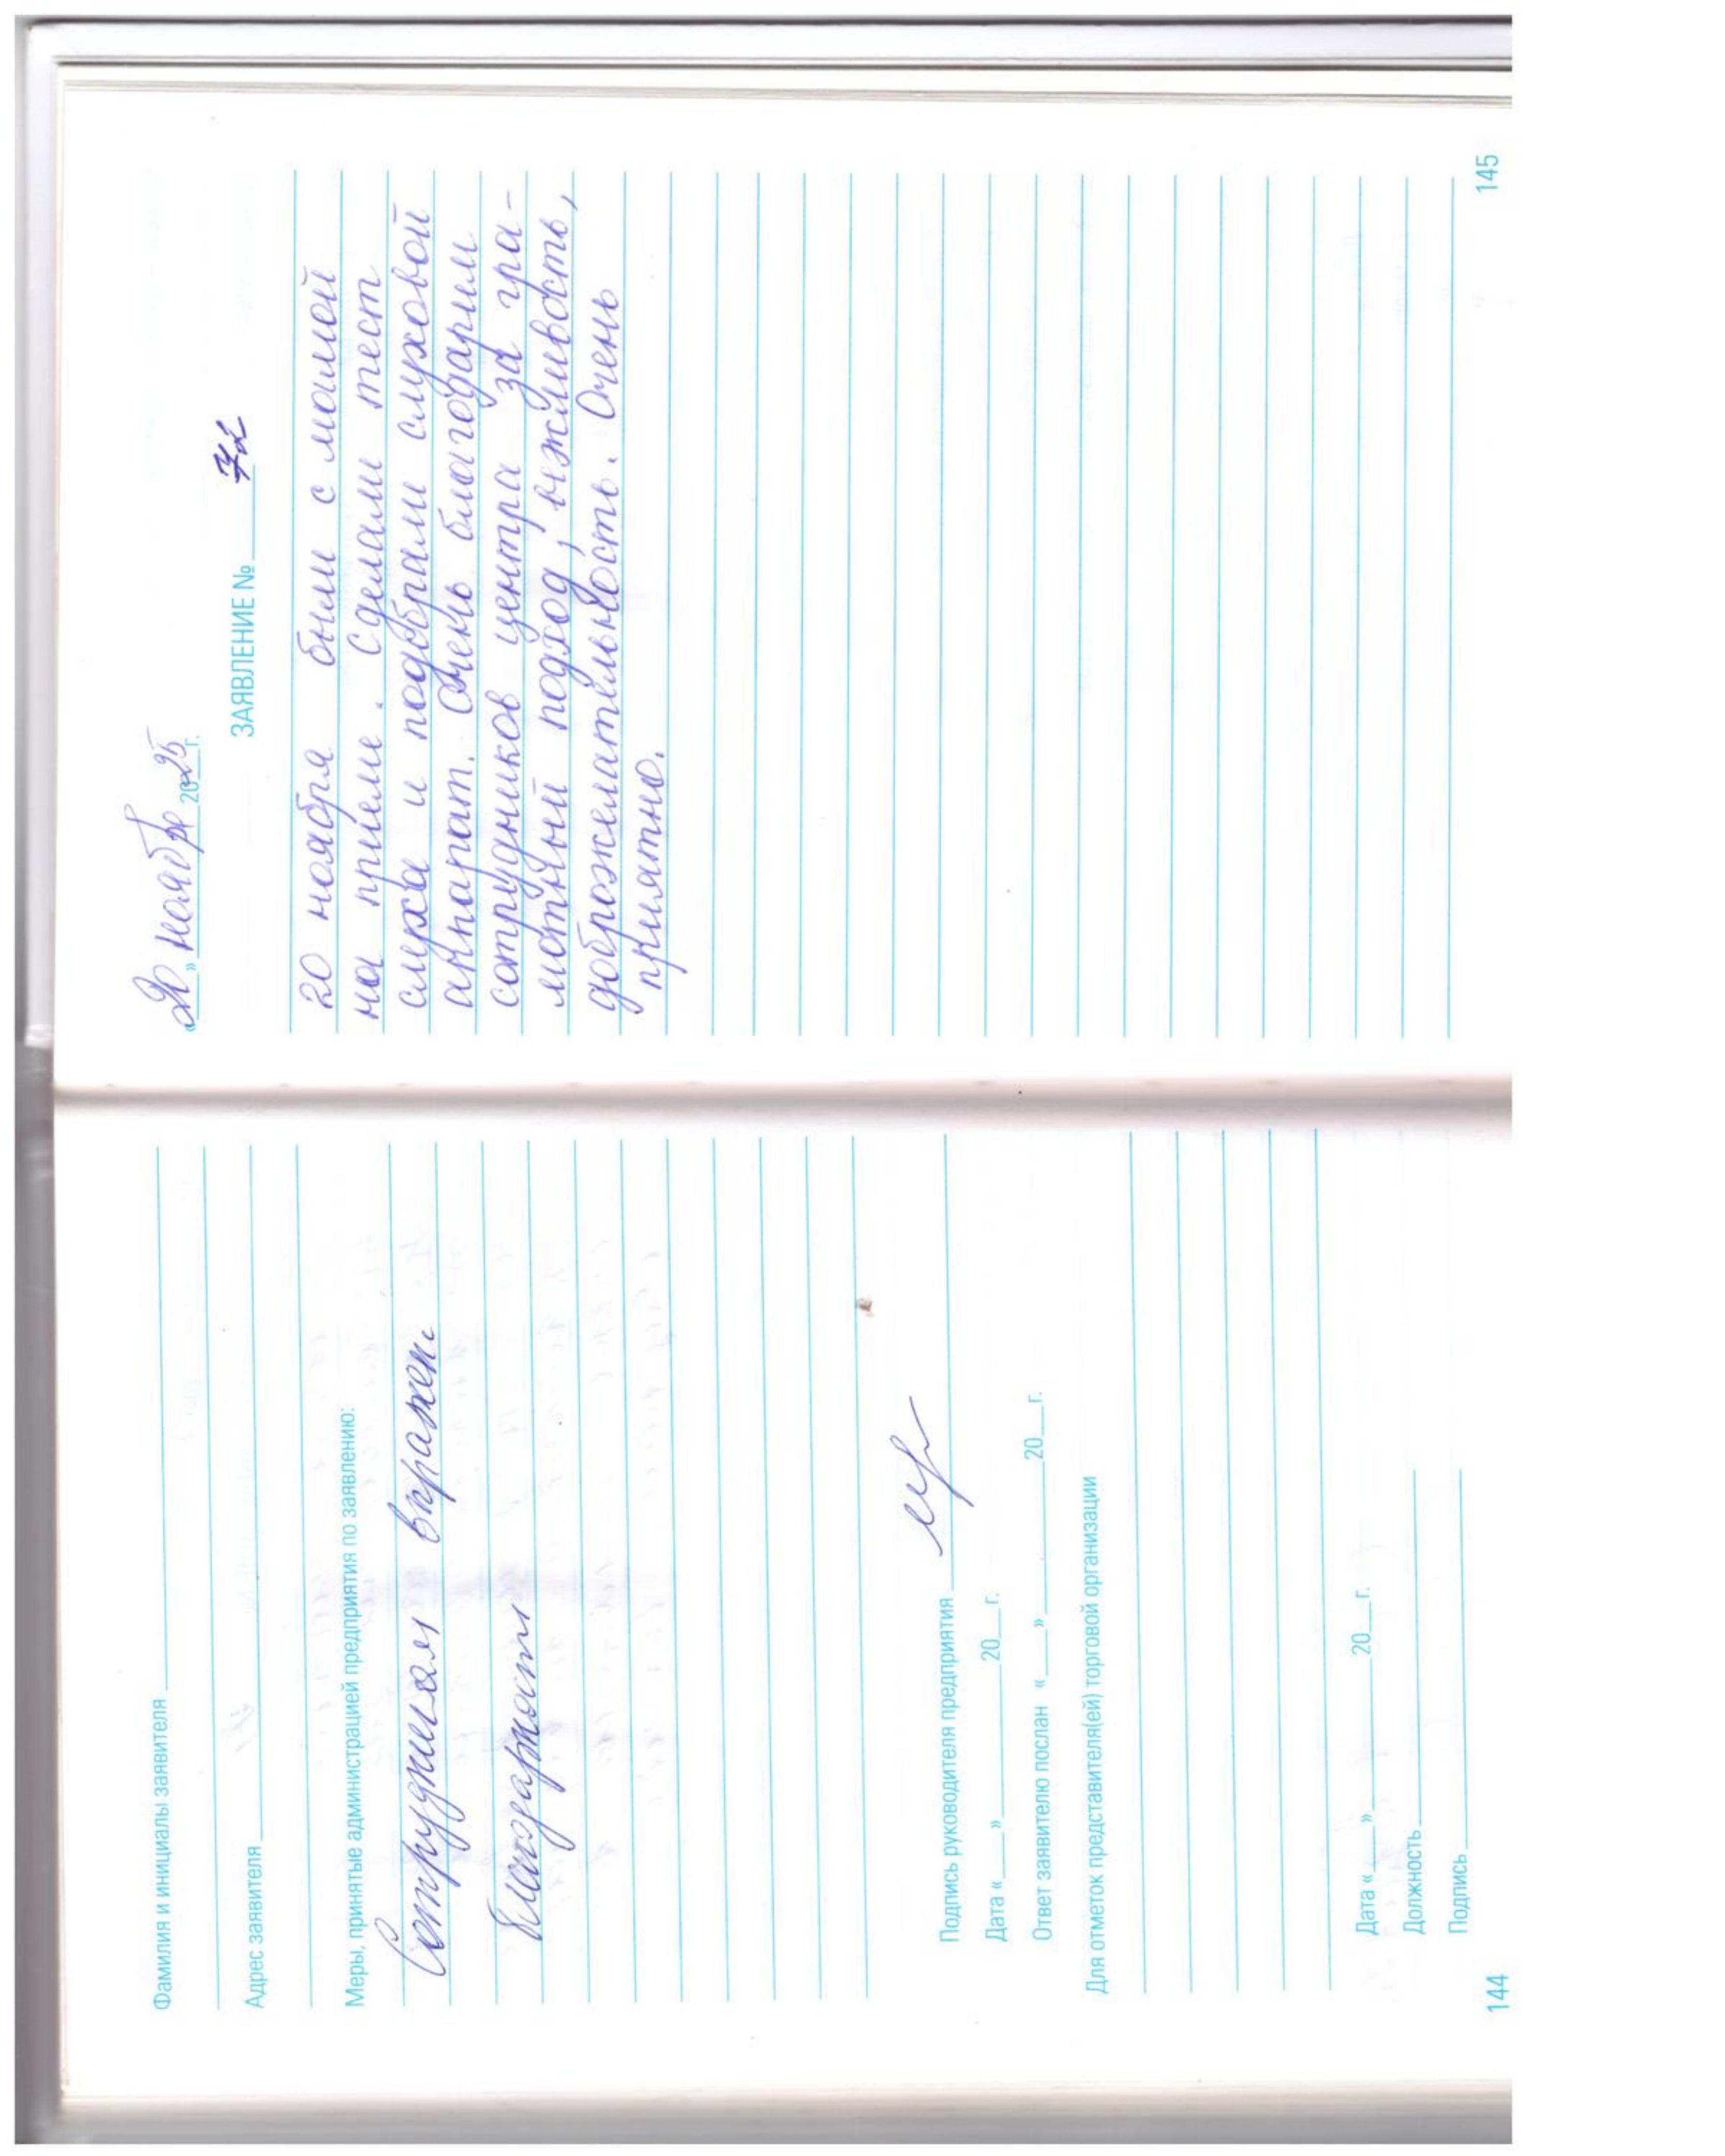 Фамилия и инициалы заявителя
Адрес заявителя
Меры, принятые администрацией предприятия по заявлению:
Сотрудникам выражен.
благодарность
Подпись руководителя предприятия
Дата «___» ________ 20__г.
Ответ заявителю послан «___» ________ 20__г.
Для отметок представителя(ей) торговой организации
Дата «___» ________ 20__г.
Должность
Подпись
144
«20» ноября 2025 г.
ЗАЯВЛЕНИЕ № 72
20 ноября были с мамой
на приеме. Сделали тест
слуха и подобрали слуховой
аппарат. Очень благодарим
сотрудников центра за гра-
мотный подход, вежливость,
доброжелательность. Очень
приятно.
145